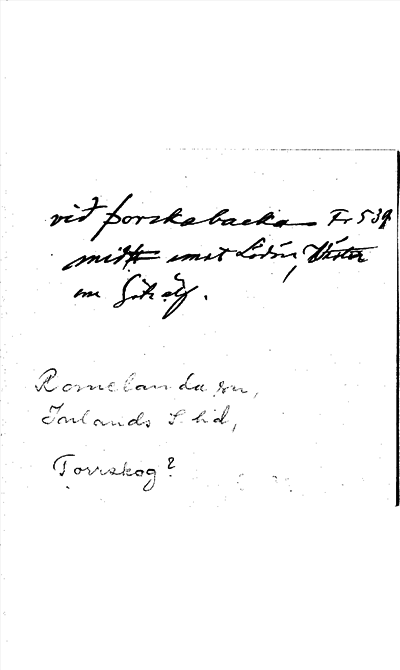 við þorskabacka Fr 539
midt emot Lödöse, Väster
om Göt. älf.
Romelanda sn,
Inlands S hd,
Torrskog?